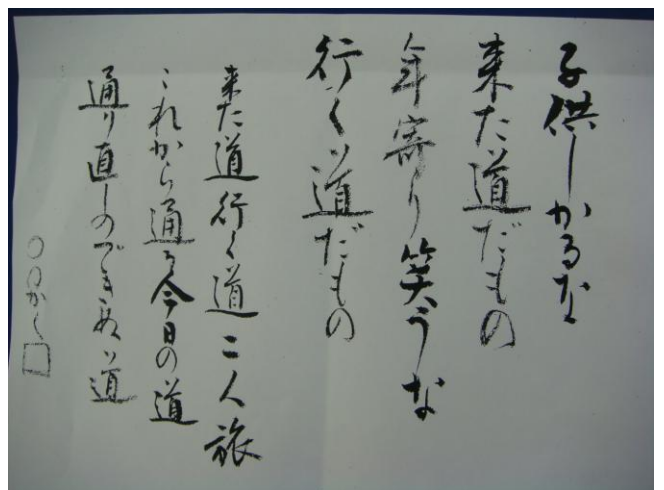 子供しかるな
来た道だもの
年寄り笑うな
行く道だもの
来た道行く道二人旅
これから通る今日の道
通り直しのできぬ道
〇〇かく□